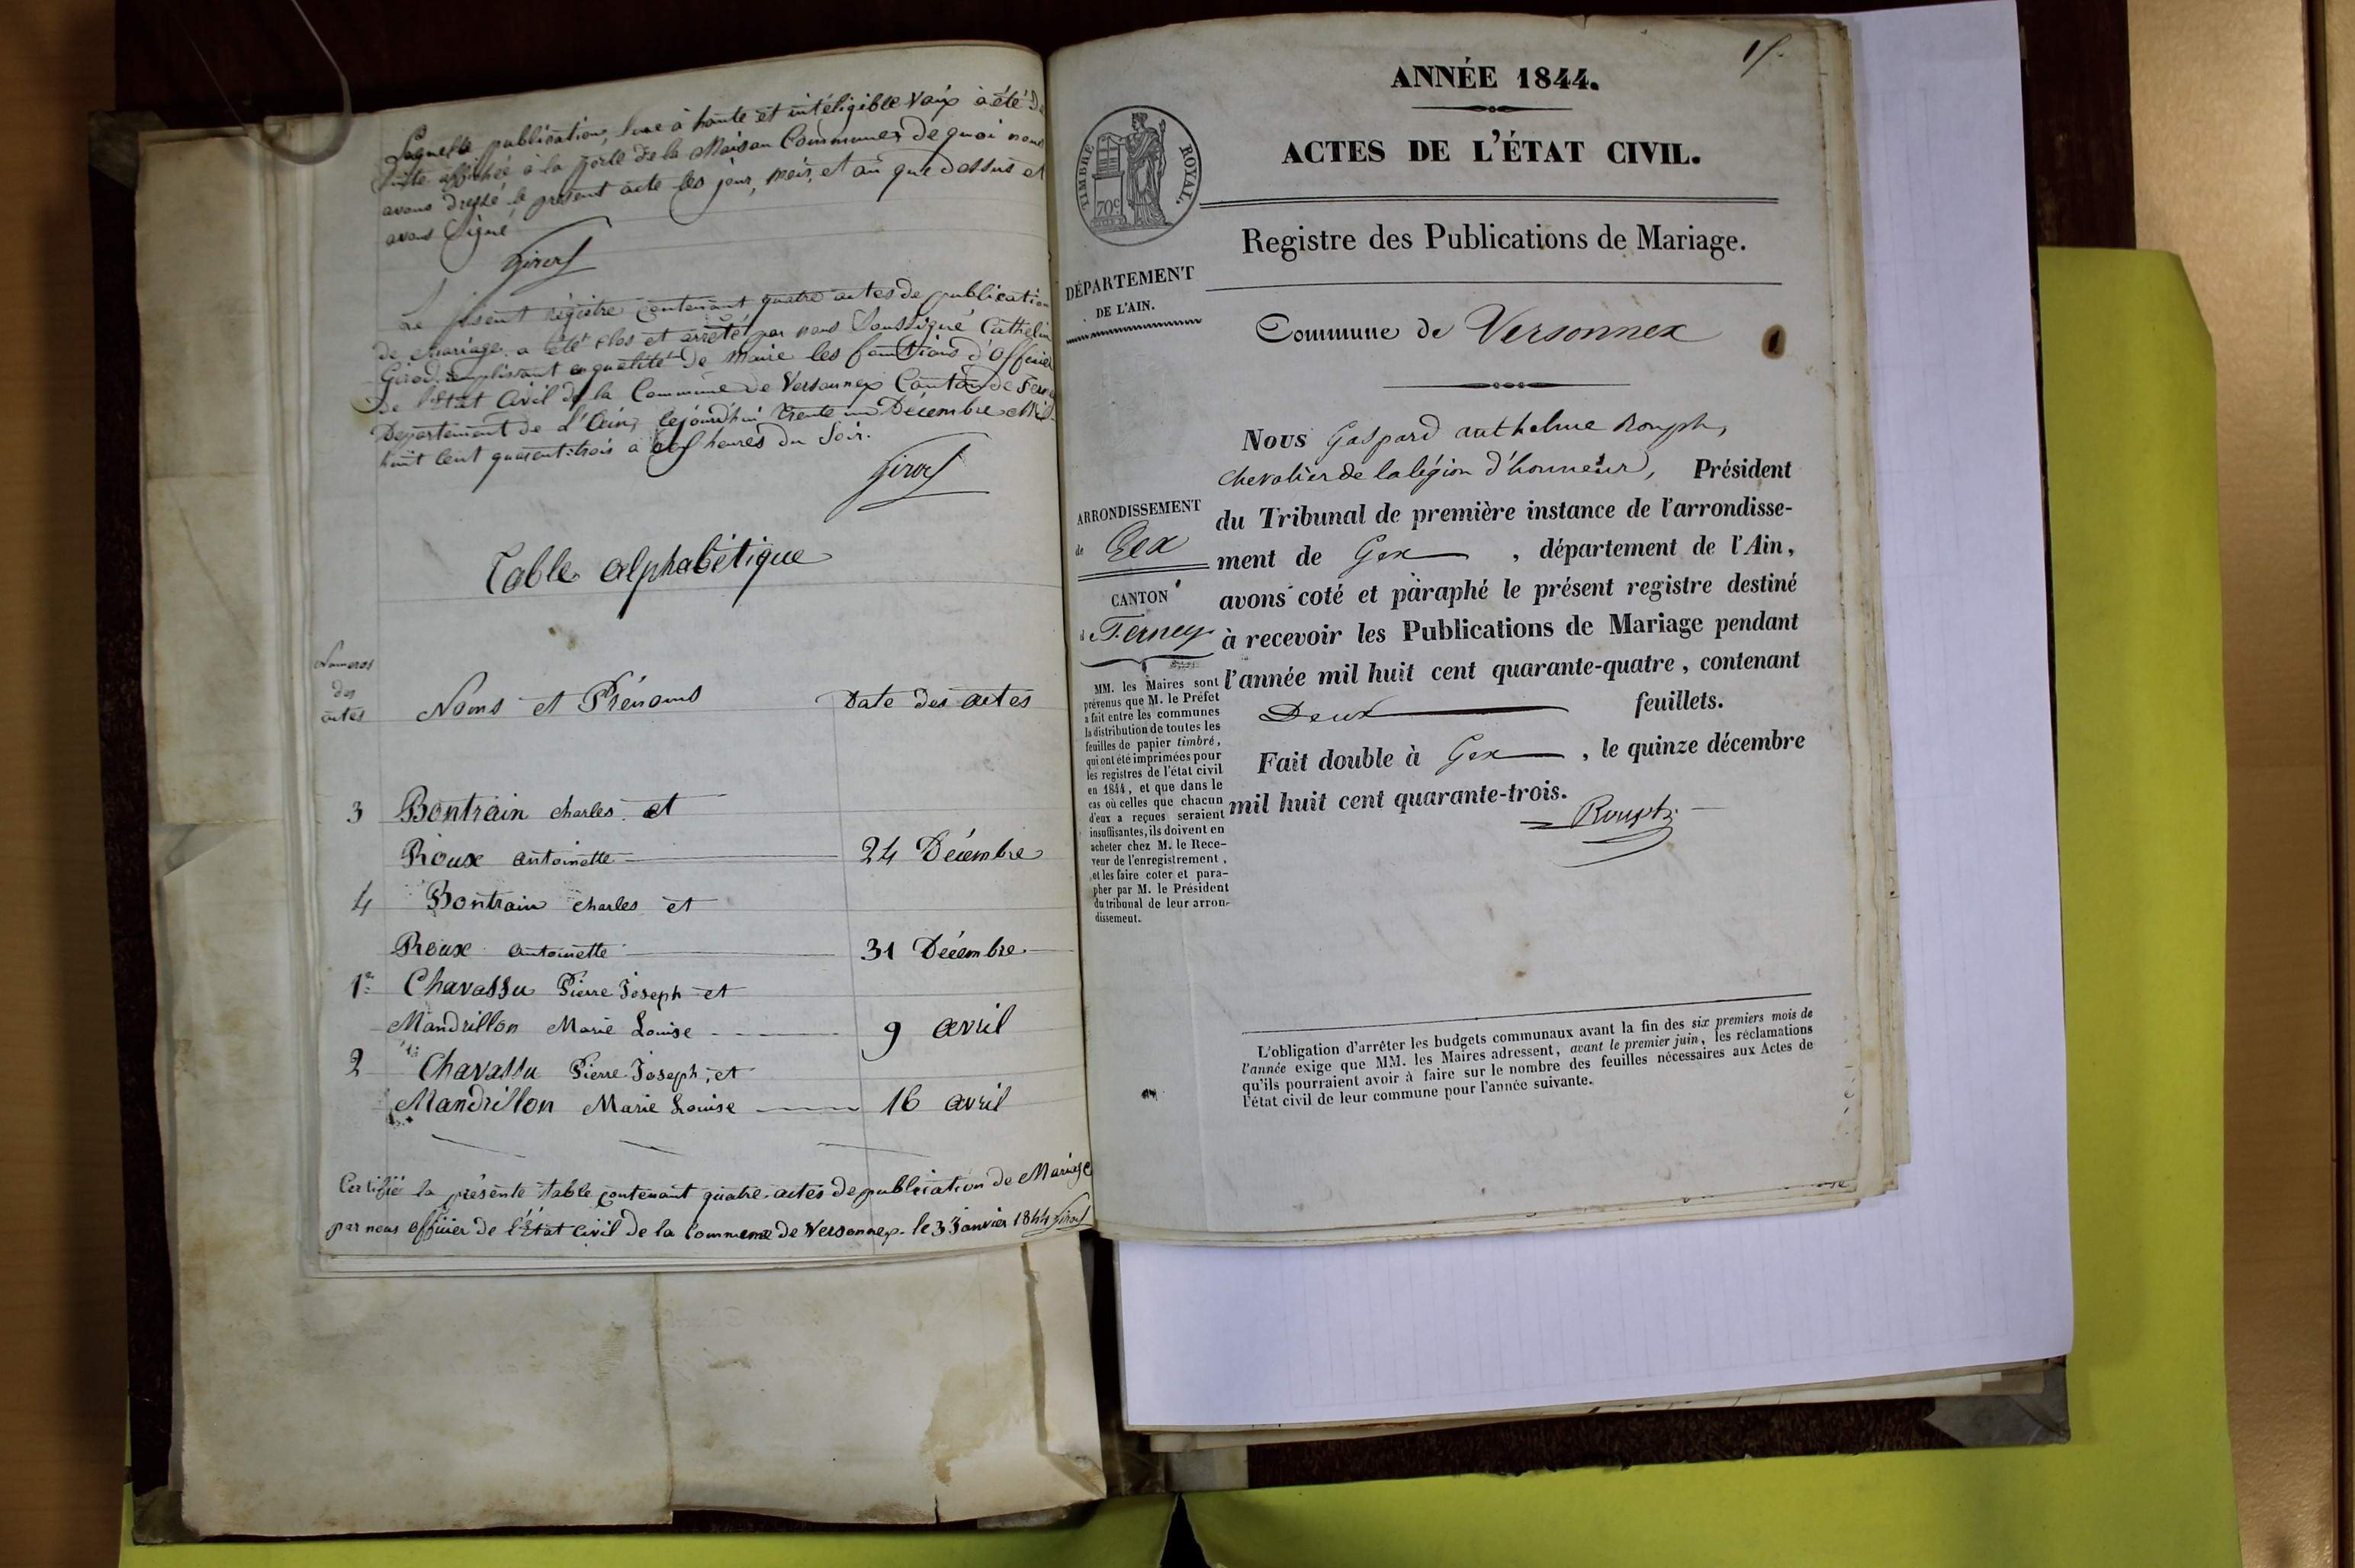 Laquelle publication, lue à haute et intéligible vaix à été de
suite affichée à la porte de la Maison Commune, de quoi nous
avons dressé le présent acte les jour, mois, et an que dessus et
avons Signé
Girod
Le présent régistre contenant quatre actes de publication
de mariage a été clos et arrêté par nous Soussigné Cathelin
Girod remplissant en qualité de Maire les fonctions d'Officier
de l'Etat Civil de la Commune de Versonnex Canton de
Département de l'Ain, cejourd'hui trente un Décembre Mil
huit cent quarent-trois à heures du Soir.
Girod
Table alphabétique
Numeros
des
actes
Noms et Prénoms
Date des actes
3 Bontrain charles et
Roux antoinette 24 Décembre
4 Bontrain charles et
Roux antoinette 31 Décembre
1er Chavassu Pierre Joseph et
Mandrillon Marie Louise 9 avril
2 Chavassu Pierre Joseph, et
Mandrillon Marie Louise 16 avril
Certifié la présente table contenant quatre actes de publication de Mariage
par nous officier de l'État civil de la Commune de Versonnex. le 3 Janvier 1844 Girod
ANNÉE 1844.
ACTES DE L'ÉTAT CIVIL.
TIMBRE ROYAL.
70c
Registre des Publications de Mariage.
DÉPARTEMENT
DE L'AIN.
Commune de Versonnex
ARRONDISSEMENT
de Gex
CANTON
de Ferney
MM. les Maires sont
prévenus que M. le Préfet
a fait entre les communes
la distribution de toutes les
feuilles de papier timbré,
qui ont été imprimées pour
les registres de l'état civil
en 1844, et que dans le
cas où celles que chacun
d'eux a reçues seraient
insuffisantes, ils doivent en
acheter chez M. le Rece-
veur de l'enregistrement,
et les faire coter et para-
pher par M. le Président
du tribunal de leur arron-
dissement.
Nous Gaspard anthelme Rouph,
chevalier de la légion d'honneur, Président
du Tribunal de première instance de l'arrondisse-
ment de Gex, département de l'Ain,
avons coté et paraphé le présent registre destiné
à recevoir les Publications de Mariage pendant
l'année mil huit cent quarante-quatre, contenant
Deux feuillets.
Fait double à Gex, le quinze décembre
mil huit cent quarante-trois.
Rouph
L'obligation d'arrêter les budgets communaux avant la fin des six premiers mois de
l'année exige que MM. les Maires adressent, avant le premier juin, les réclamations
qu'ils pourraient avoir à faire sur le nombre des feuilles nécessaires aux Actes de
l'état civil de leur commune pour l'année suivante.